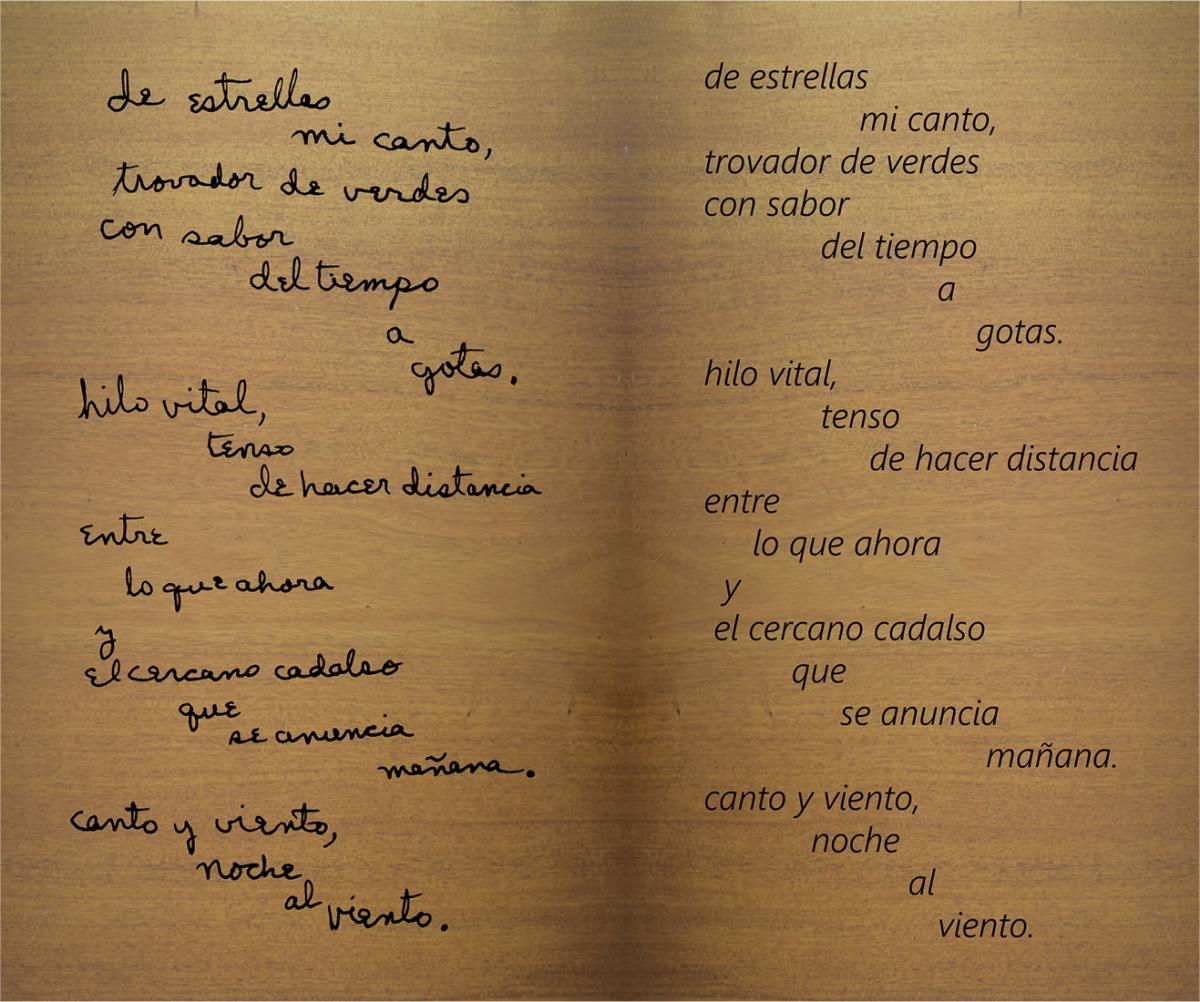 de estrellas
mi canto,
trovador de verdes
con sabor
del tiempo
a
gotas.
hilo vital,
tenso
de hacer distancia
entre
lo que ahora
y
el cercano cadalso
que
se anuncia
mañana.
canto y viento,
noche
al
viento.
de estrellas
mi canto,
trovador de verdes
con sabor
del tiempo
a
gotas.
hilo vital,
tenso
de hacer distancia
entre
lo que ahora
y
el cercano cadalso
que
se anuncia
mañana.
canto y viento,
noche
al
viento.